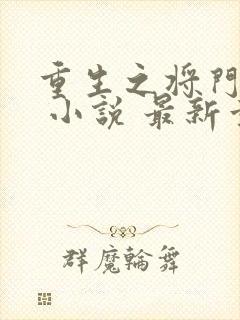 重生之将門
小說 最新
群魔輪舞